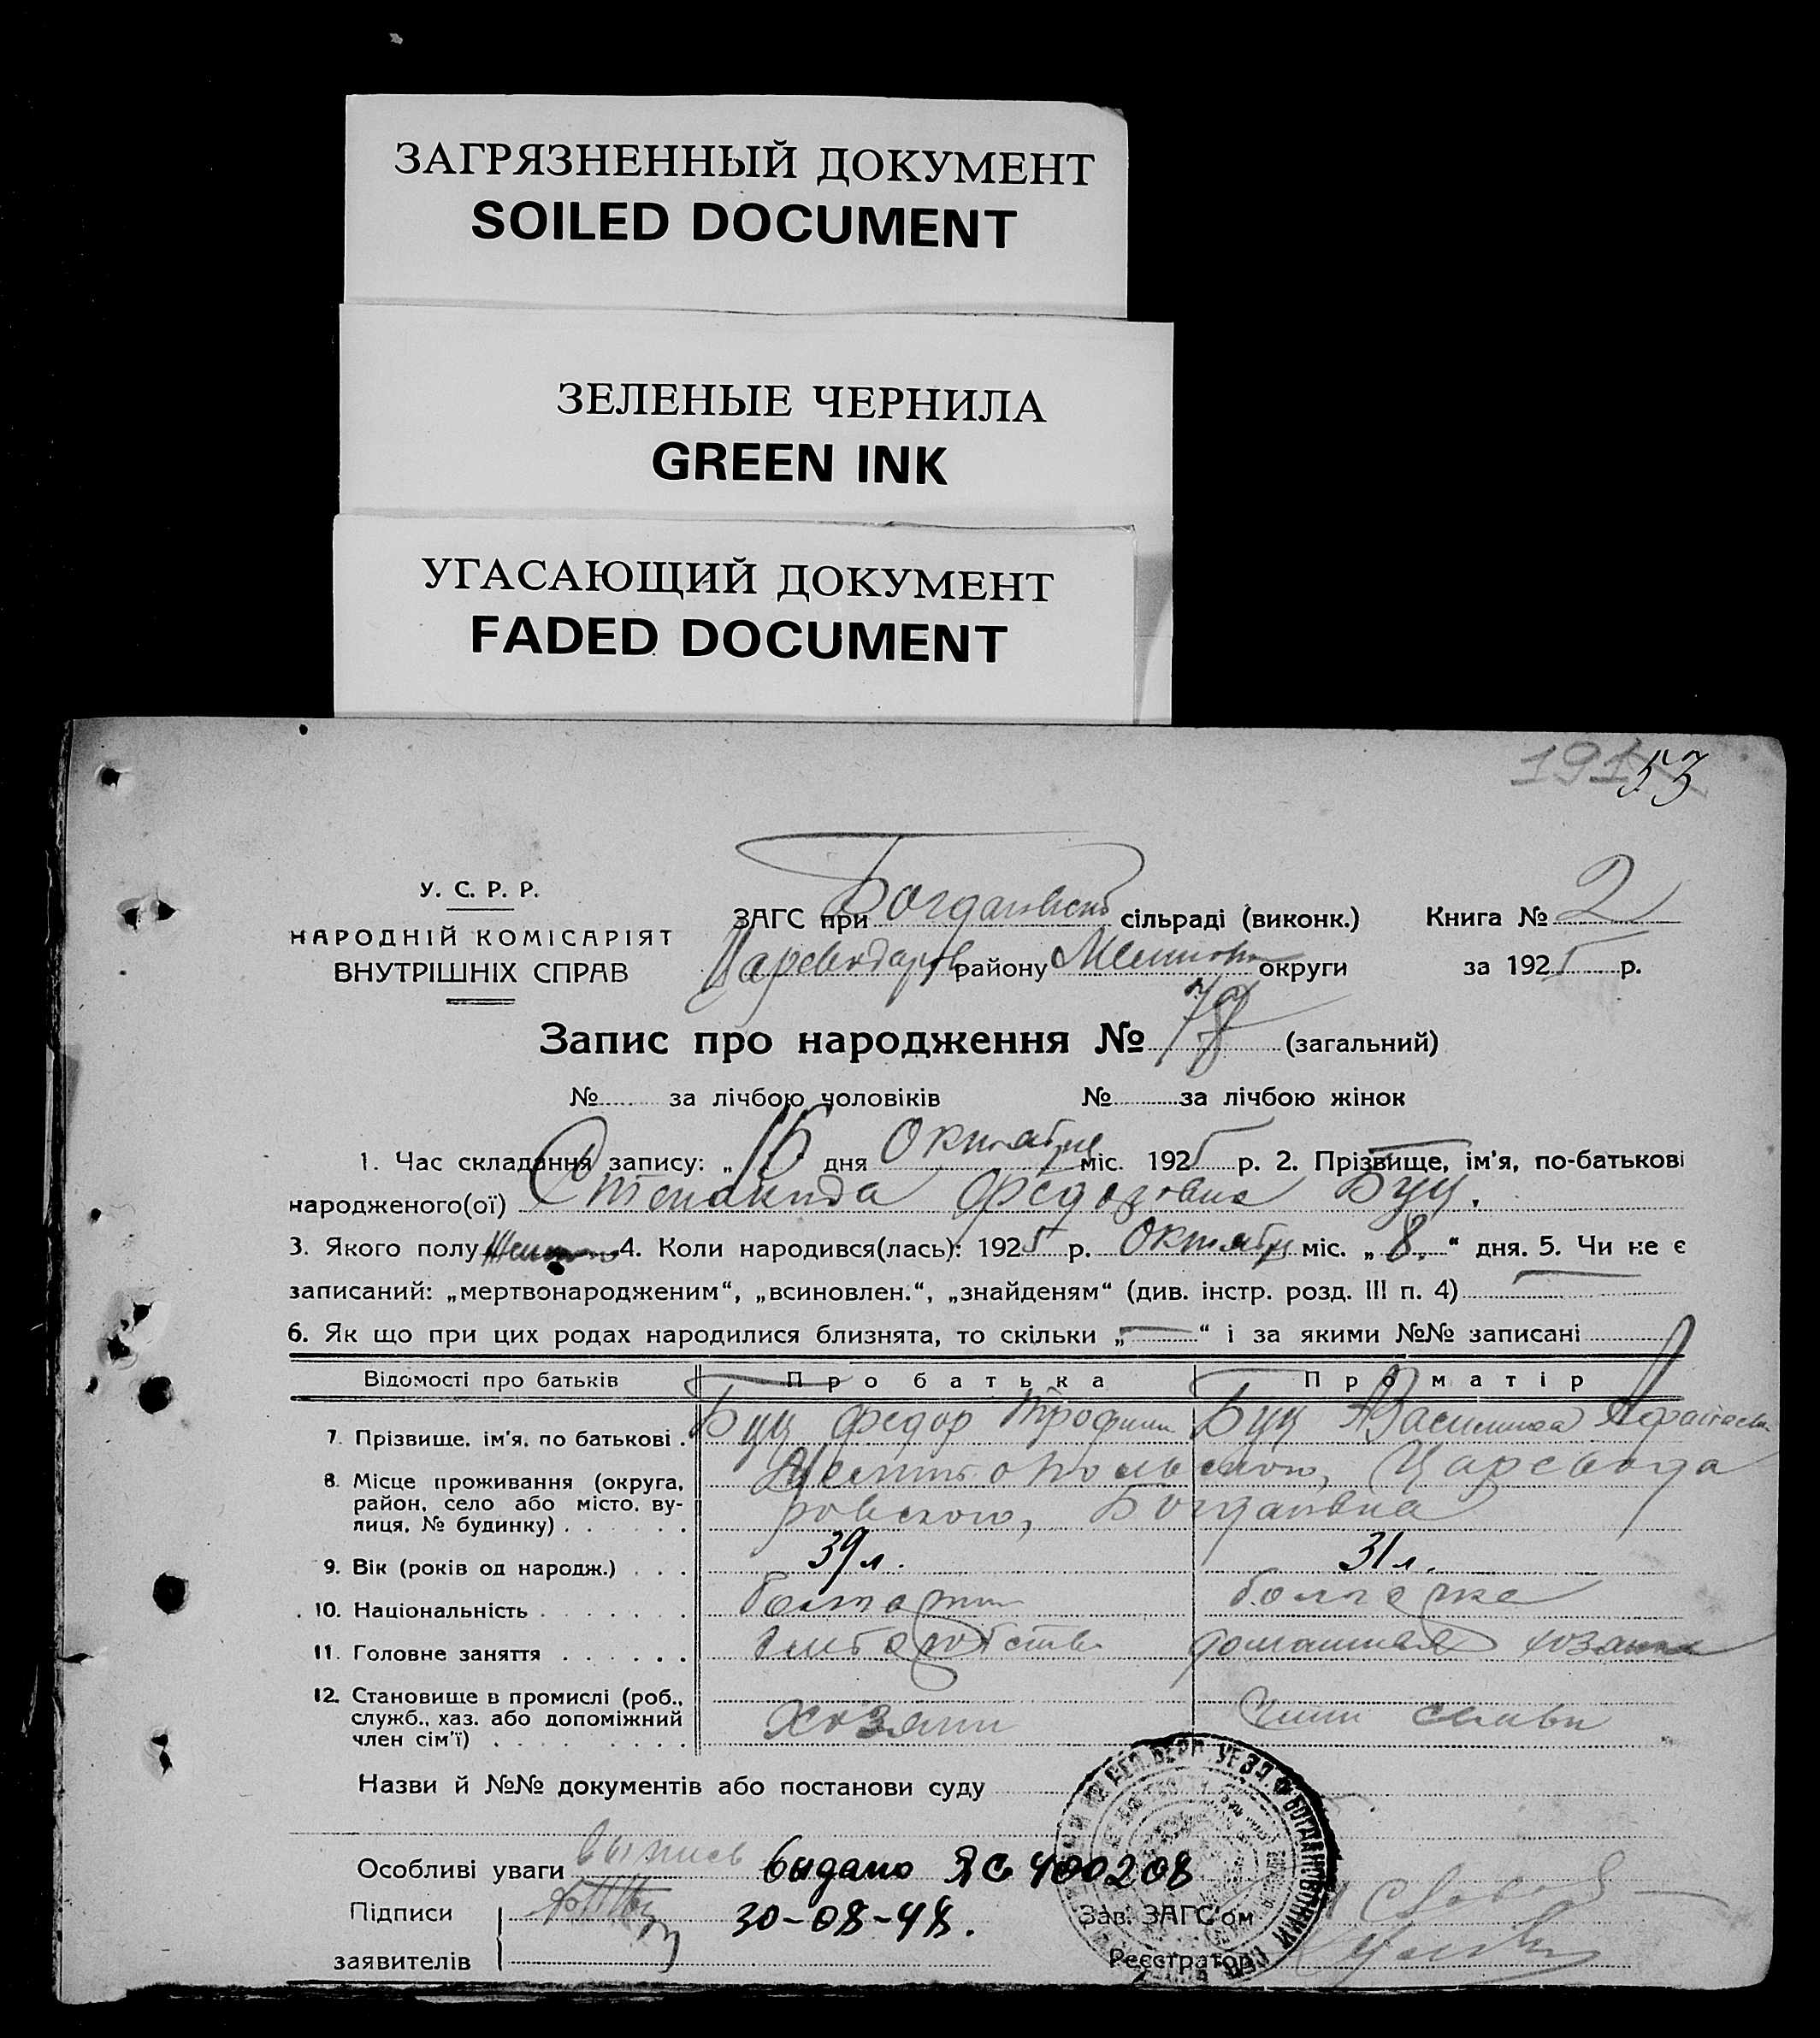 ЗАГРЯЗНЕННЫЙ ДОКУМЕНТ
SOILED DOCUMENT
ЗЕЛЕНЫЕ ЧЕРНИЛА
GREEN INK
УГАСАЮЩИЙ ДОКУМЕНТ
FADED DOCUMENT
191 53
У. С. Р. Р.
НАРОДНІЙ КОМІСАРІЯТ
ВНУТРІШНІХ СПРАВ
ЗАГС при Богдановской сільраді (виконк.) Книга № 2
Цареводаров району округи за 1925 р.
Запис про народження № 78 (загальний)
№ за лічбою чоловіків № за лічбою жінок
1. Час складання запису: „16 дня Октября міс. 1925 р. 2. Прізвище, ім'я, по-батькові
народженого(ої) Степанида Федоровна Буц.
3. Якого полу 4. Коли народився(лась): 1925 р. Октября міс. „8.“ дня. 5. Чи не є
записаний: „мертвонародженим“, „всиновлен.“, „знайденям“ (див. інстр. розд. III п. 4) —
6. Як що при цих родах народилися близнята, то скільки „—“ і за якими №№ записані
Відомості про батьків Про батька Про матір
7. Прізвище, ім'я, по батькові . Буц Федор Трофим Буц Василиса
8. Місце проживання (округа, район, село або місто, вулиця, № будинку) Мелитопольского, Царевода
ровского, Богдановка
9. Вік (років од народж.) . . . 39 л. 31 л.
10. Національність болгарин болгарка
11. Головне заняття хлеборобство домашняя хозяйка
12. Становище в промислі (роб., служб., хаз. або допоміжний член сім'ї) хозяин член семьи
Назви й №№ документів або постанови суду
Особливі уваги выпись выдано ЯС 400208
Підписи 30-08-48. Зав. ЗАГС'ом
заявителів Реєстратор